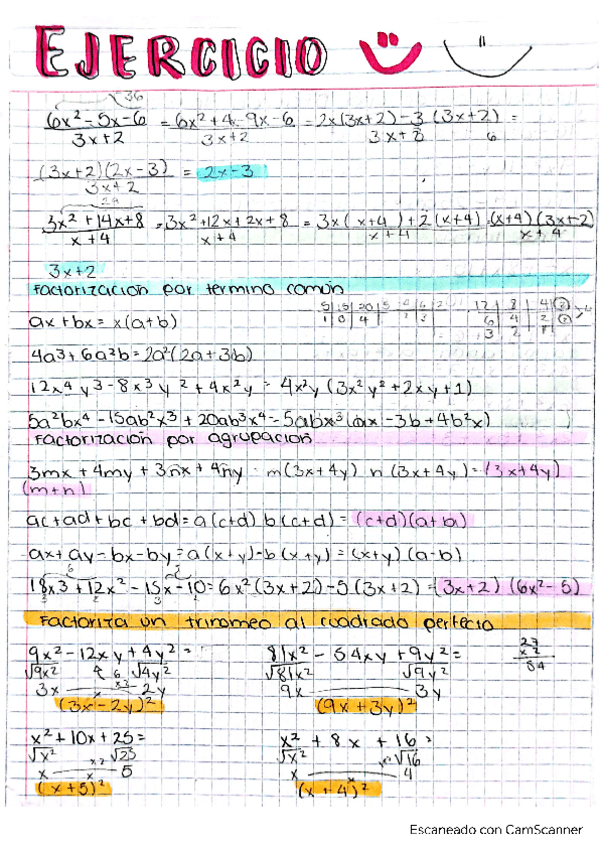 EJERCICIO
36
6x² - 5x - 6 / 3x+2 = 6x² + 4 - 9x - 6 / 3x+2 = 2x(3x+2) - 3(3x+2) / 3x+2 =
(3x+2)(2x-3) / 3x+2 = 2x-3
24
3x² + 14x + 8 / x+4 = 3x² + 12x + 2x + 8 / x+4 = 3x(x+4) + 2(x+4) / x+4 (x+4)(3x+2) / x+4
3x+2
Factorización por termino común
ax + bx = x(a+b)
4a3 + 6a²b = 2a²(2a+3b)
12x4 y3 - 8x3 y2 + 4x²y = 4x²y (3x²y² + 2xy + 1)
5a²bx4 - 15ab²x3 + 20ab3x4 = 5abx3 (ax - 3b + 4b²x)
Factorización por agrupación
3mx + 4my + 3nx + 4ny = m(3x+4y) n(3x+4y) = (3x+4y)
(m+n)
ac + ad + bc + bd = a(c+d) b(c+d) = (c+d)(a+b)
ax + ay - bx - by = a(x+y) - b(x+y) = (x+y)(a-b)
18x3 + 12x² - 15x - 10 = 6x²(3x+2) - 5(3x+2) = (3x+2)(6x²-5)
Factoriza un trinomeo al cuadrado perfecto
9x² - 12xy + 4y² = 81x² - 54xy + 9y² =
√9x² √4y² √81x² √9y²
3x 2y 9x 3y
(3x-2y)² (9x+3y)²
27
x 2
54
x² + 10x + 25 = x² + 8x + 16 =
√x² √25 √x² √16
x 5 x 4
(x+5)² (x+4)²
Escaneado con CamScanner